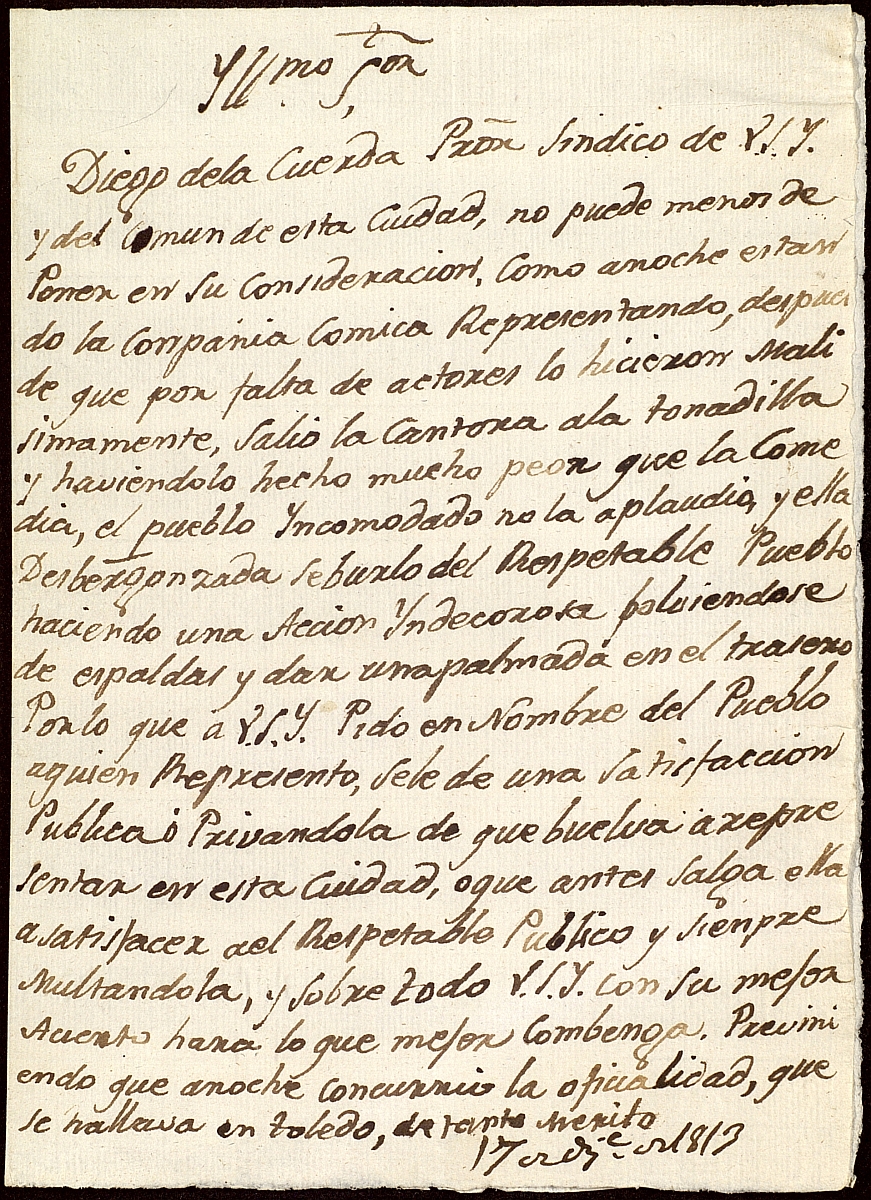 Yllmo Sor
Diego dela Cuerda Pror Sindico de V.S.Y.
y del Comun de esta Ciudad, no puede menos de
Poner en su Consideracion, Como anoche estan
do la Conpañia Comica Representando, despues
de que por falta de actores lo hicieron Mali
simamente, salio la Cantora ala tonadilla
y haviendolo hecho mucho peor que la Come
dia, el pueblo Yncomodado no la aplaudio, y ella
Desbergonzada se burlo del Respetable Pueblo
haciendo una Accion Yndecorosa bolviendose
de espaldas y dar una palmada en el trasero
Por lo que a V.S.Y. Pido en Nombre del Pueblo
aquien Represento, sele de una satisfaccion
Publica ó Privandola de que buelva a repre
sentar en esta Ciudad, o que antes salga ella
a satisfacer ael Respetable Publico y sienpre
Multandola, y sobre todo V.S.Y. con su mejor
Acuerto hara lo que mejor Combenga. Previni
endo que anoche concurrio la oficialidad, que
se hallava en Toledo, de tanto Merito
17 de 1813